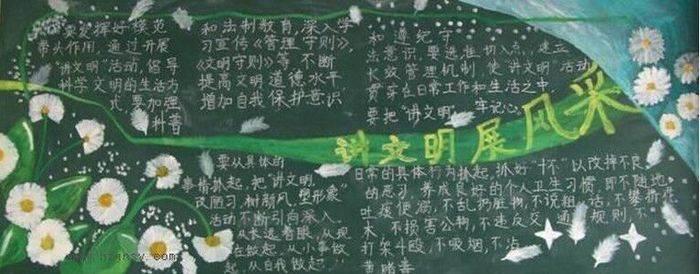 要发挥好模范
带头作用，通过开展
"讲文明"活动，倡导
科学文明的生活方
式，要加强
科普
和法制教育，深入学
习宣传《管理守则》，
《文明守则》等，不断
提高文明道德水平
增加自我保护意识
和遵纪守
法意识，要选准切入点，建立
长效管理机制，使"讲文明"活动
贯穿在日常工作和生活之中，
要把"讲文明"牢记心
讲文明展风采
要从具体的
事情抓起，把"讲文明
改陋习、树新风、塑形象"
活动不断引向深入，
从长远着眼，从现
在做起，从小事做
起，从自我做起
日常的具体行为抓起，抓好"十不"以改掉不良
的恶习，养成良好的个人卫生习惯，即不随地
吐痰便溺，不乱扔脏物，不说粗话，不攀折花
木，不损害公物，不违反交通规则，不
打架斗殴，不吸烟，不沾
黄赌毒